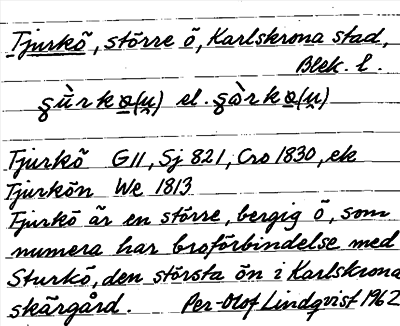 Tjurkö, större ö, Karlskrona stad,
Blek. l.
el.
Tjurkö G11, Sj 821, Cro 1830, ek
Tjurkön We 1813
Tjurkö är en större, bergig ö, som
numera har broförbindelse med
Sturkö, den största ön i Karlskrona
skärgård. Per-Olof Lindqvist 1962